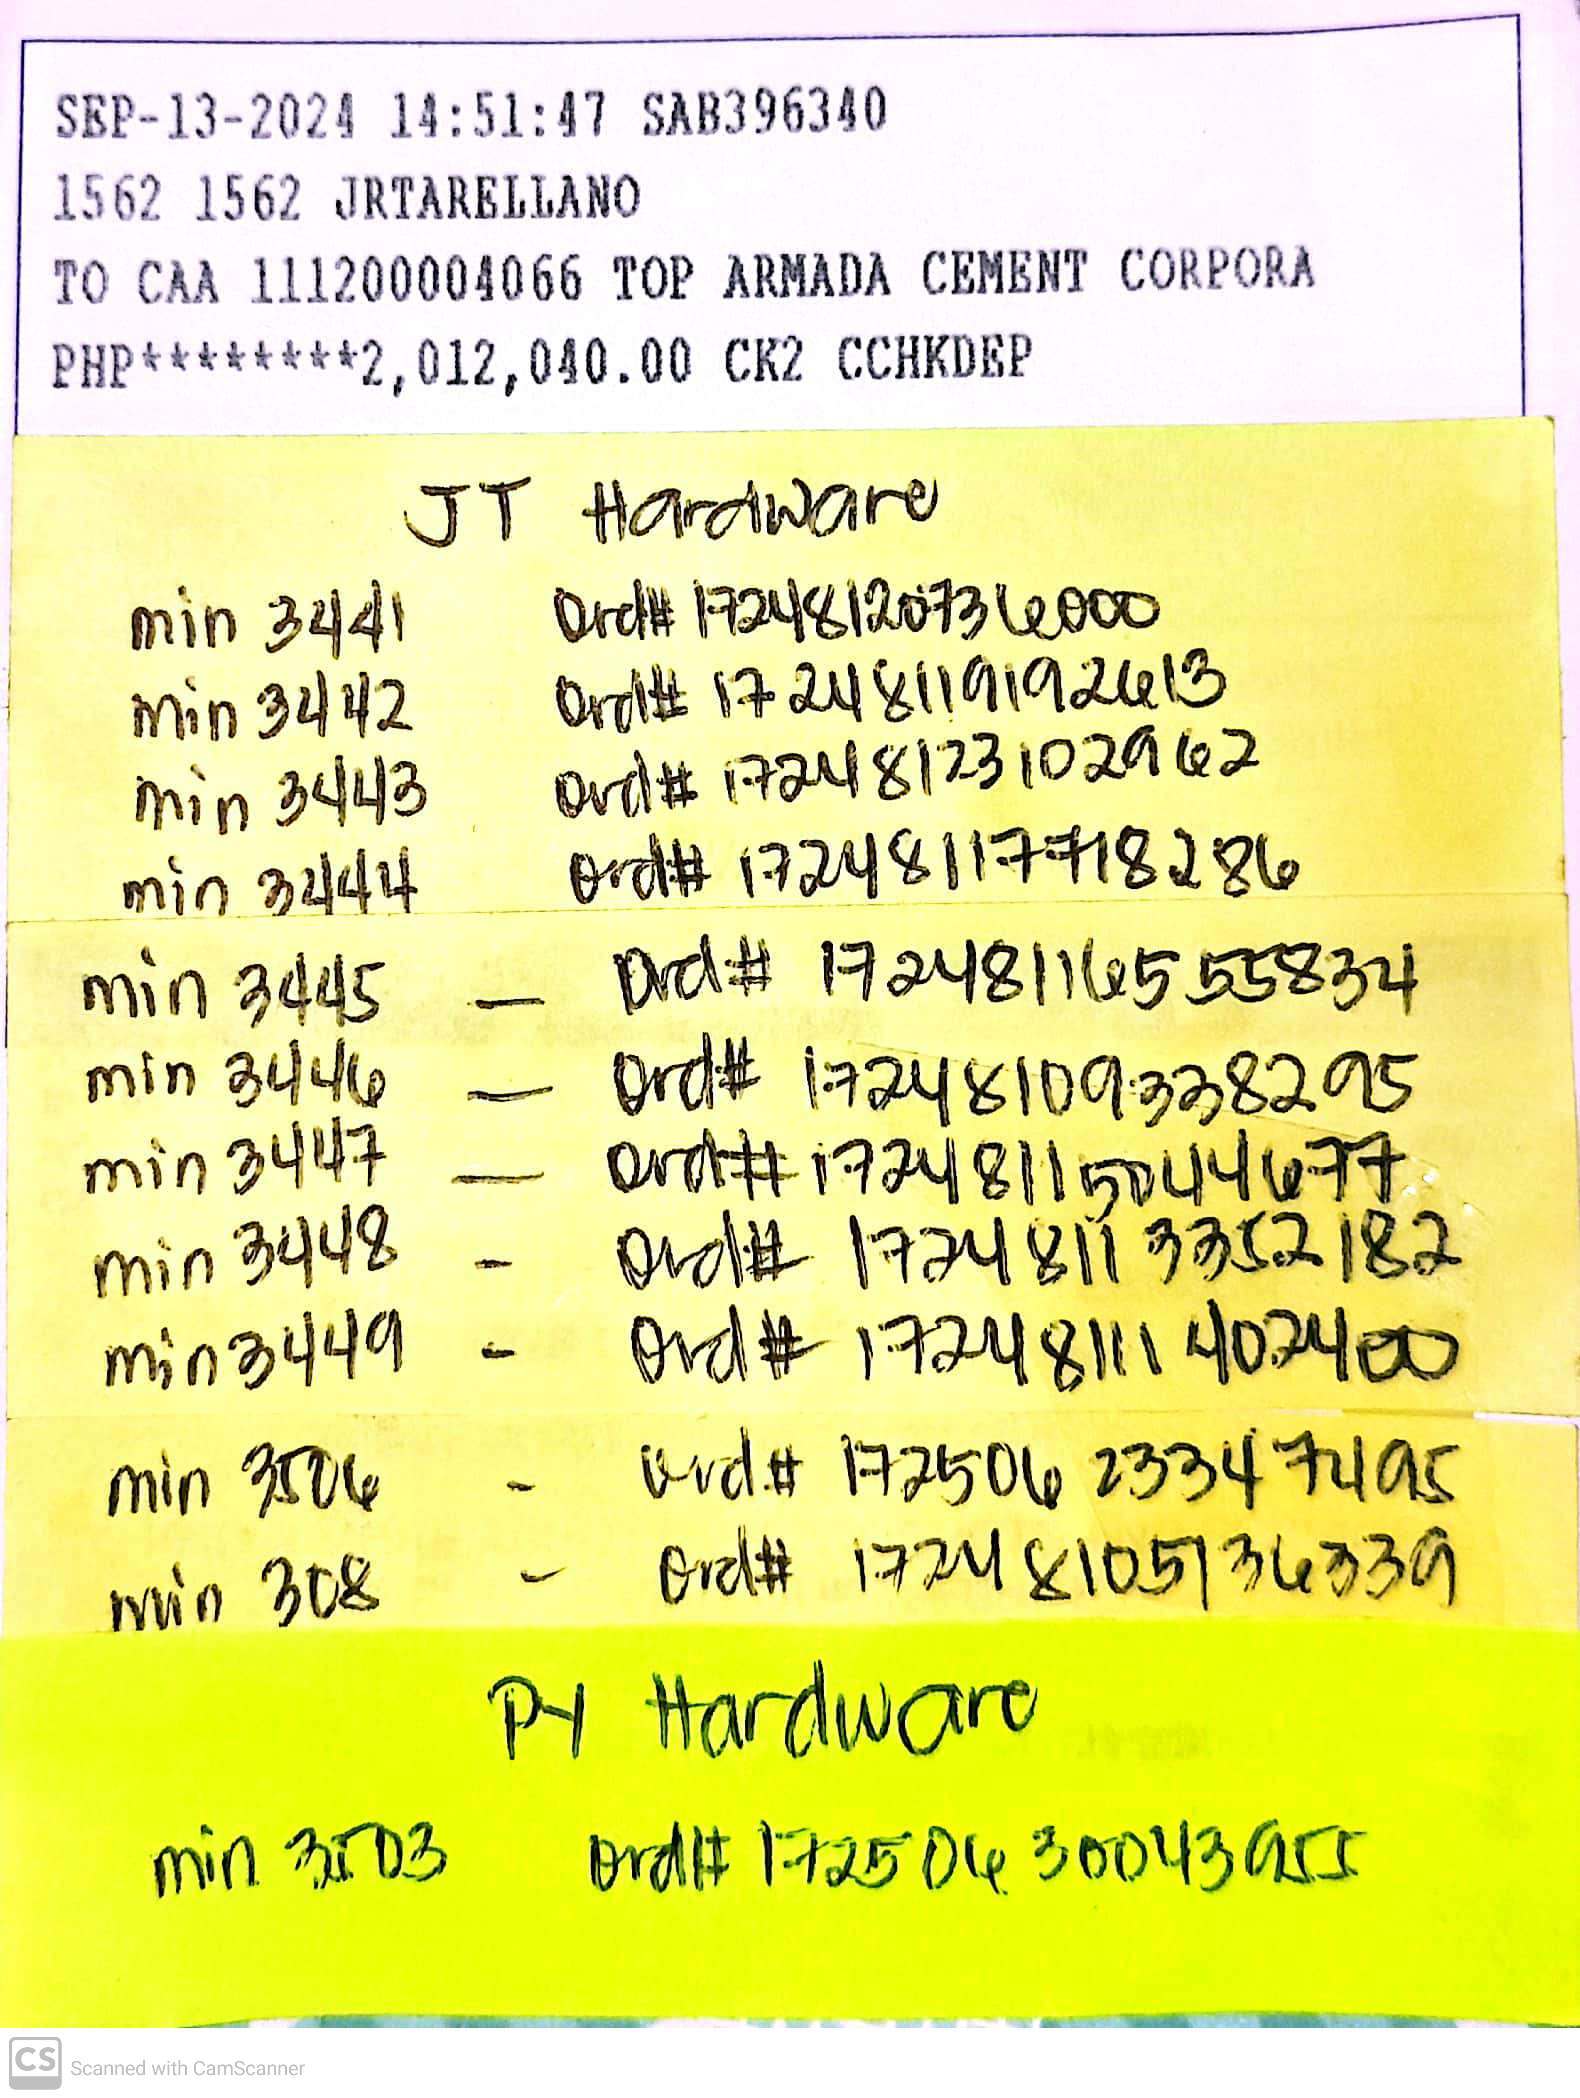 SEP-13-2024 14:51:47 SAB396340
1562 1562 JRTARELLANO
TO CAA 111200004066 TOP ARMADA CEMENT CORPORA
PHP********2,012,040.00 CK2 CCHKDEP
JT Hardware
min 3441 Ord# 17248120736000
min 3442 Ord# 17248119192613
min 3443 Ord# 17248123102962
min 3444 Ord# 17248117718286
min 3445 — Ord# 17248116555834
min 3446 — Ord# 17248109338295
min 3447 — Ord# 17248115044677
min 3448 - Ord# 17248113352182
min 3449 - Ord# 17248111402400
min 3506 - Ord# 17250623347495
min 308 - Ord# 17248105136339
PY Hardware
min 3503 Ord# 17250630043955
CS Scanned with CamScanner